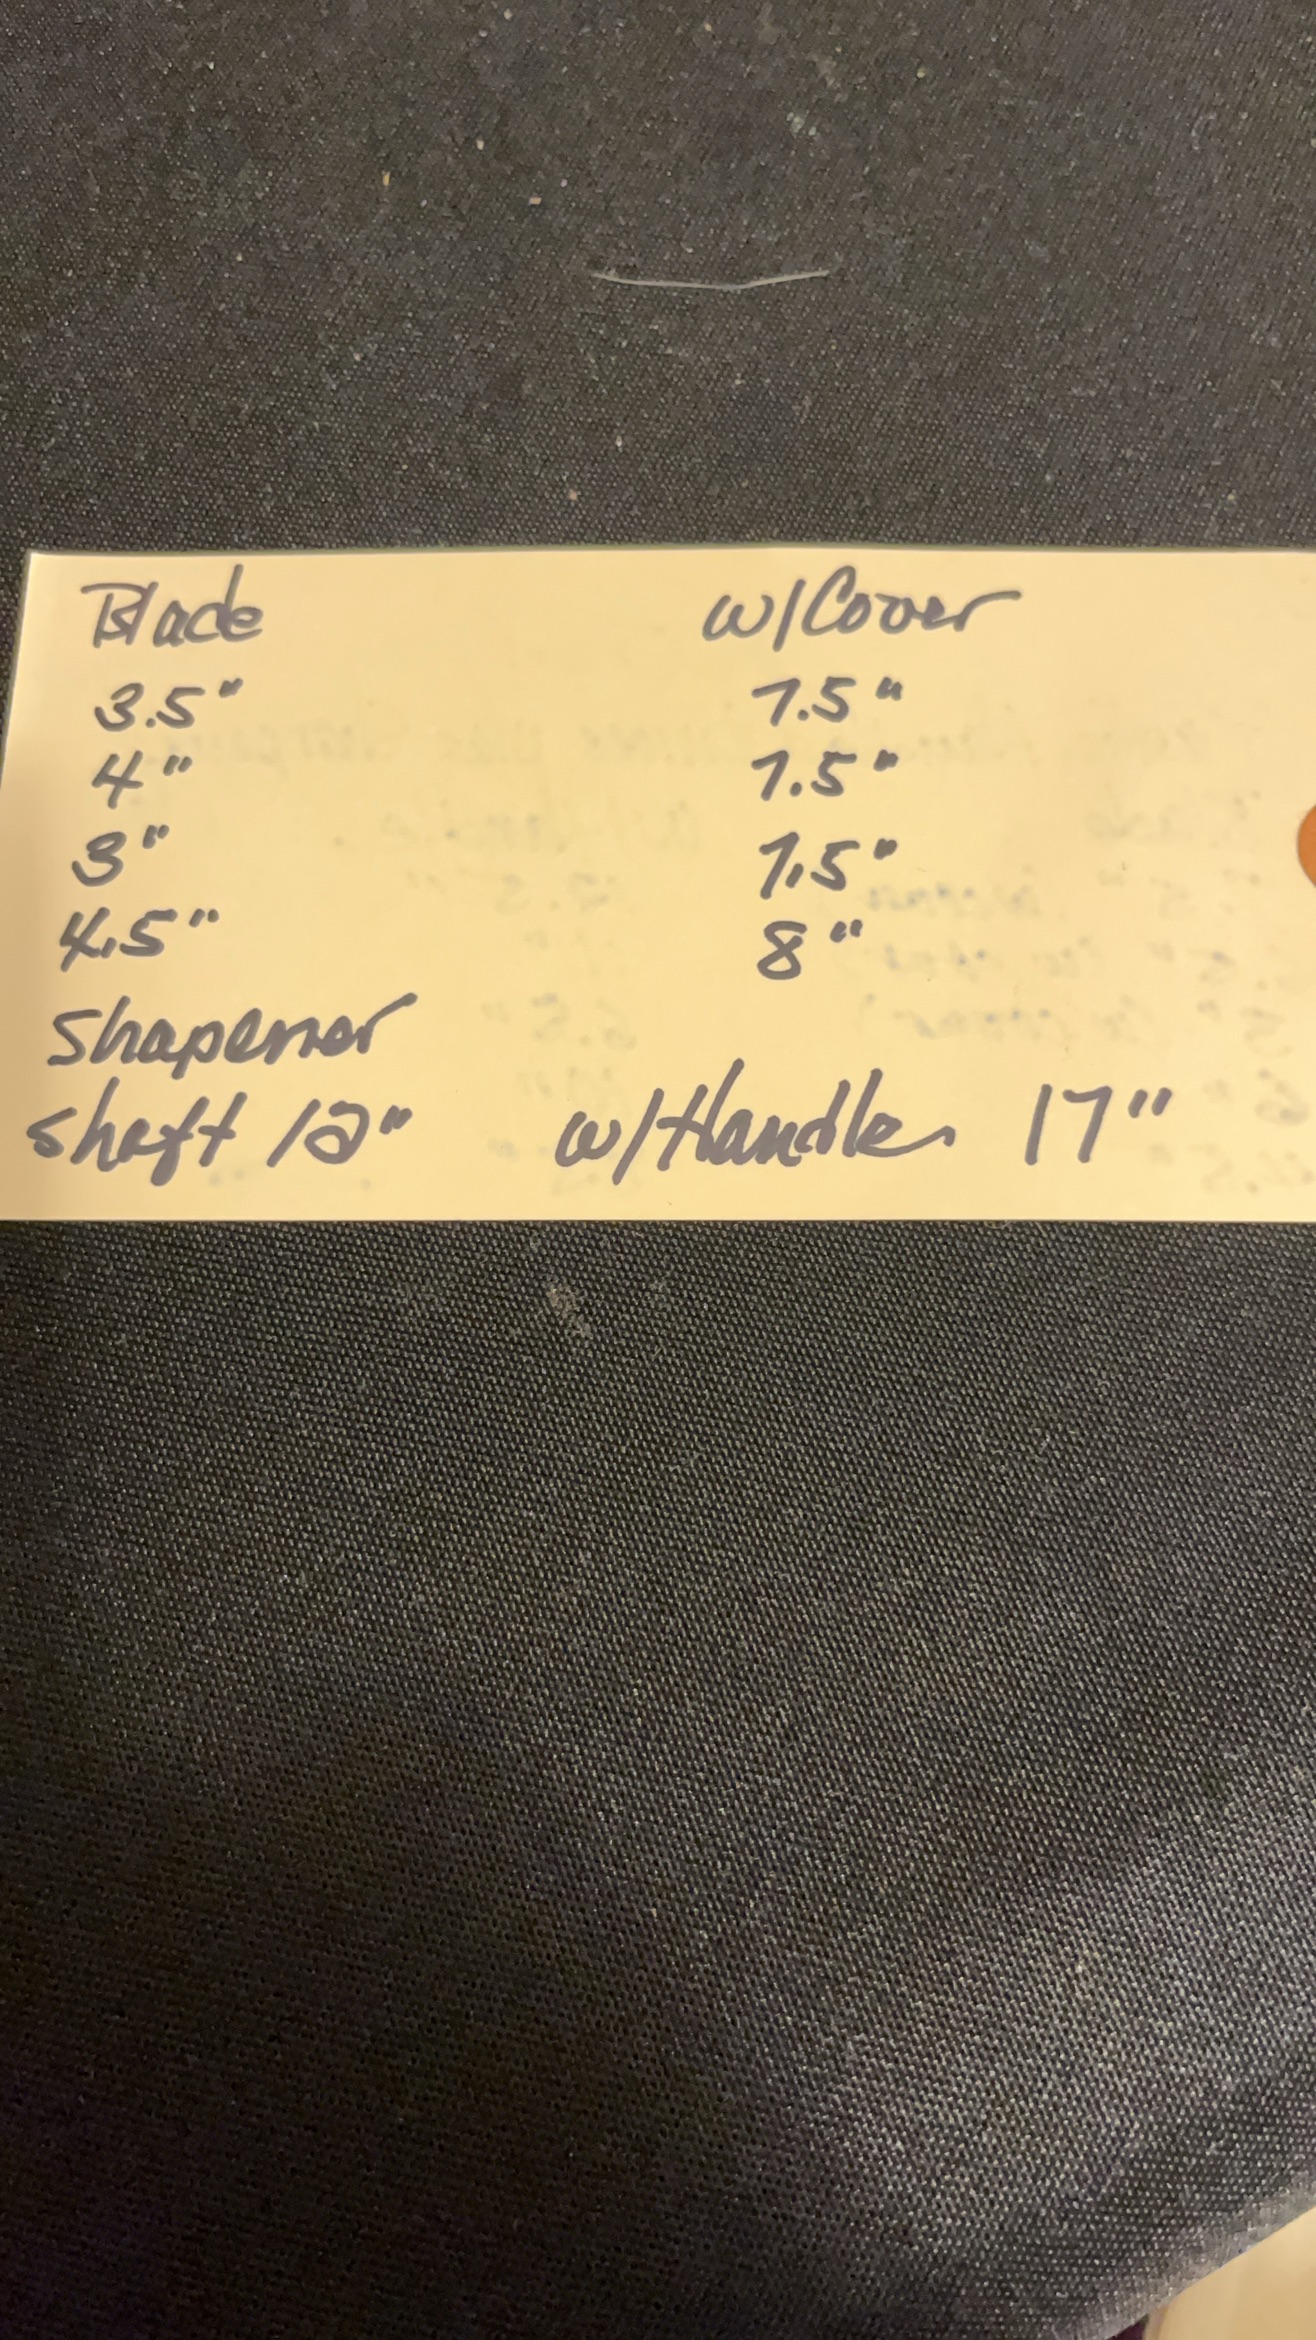 Blade w/Cover
3.5" 7.5"
4" 7.5"
3" 7.5"
4.5" 8"
Shapener
Shaft 12" w/Handle 17"